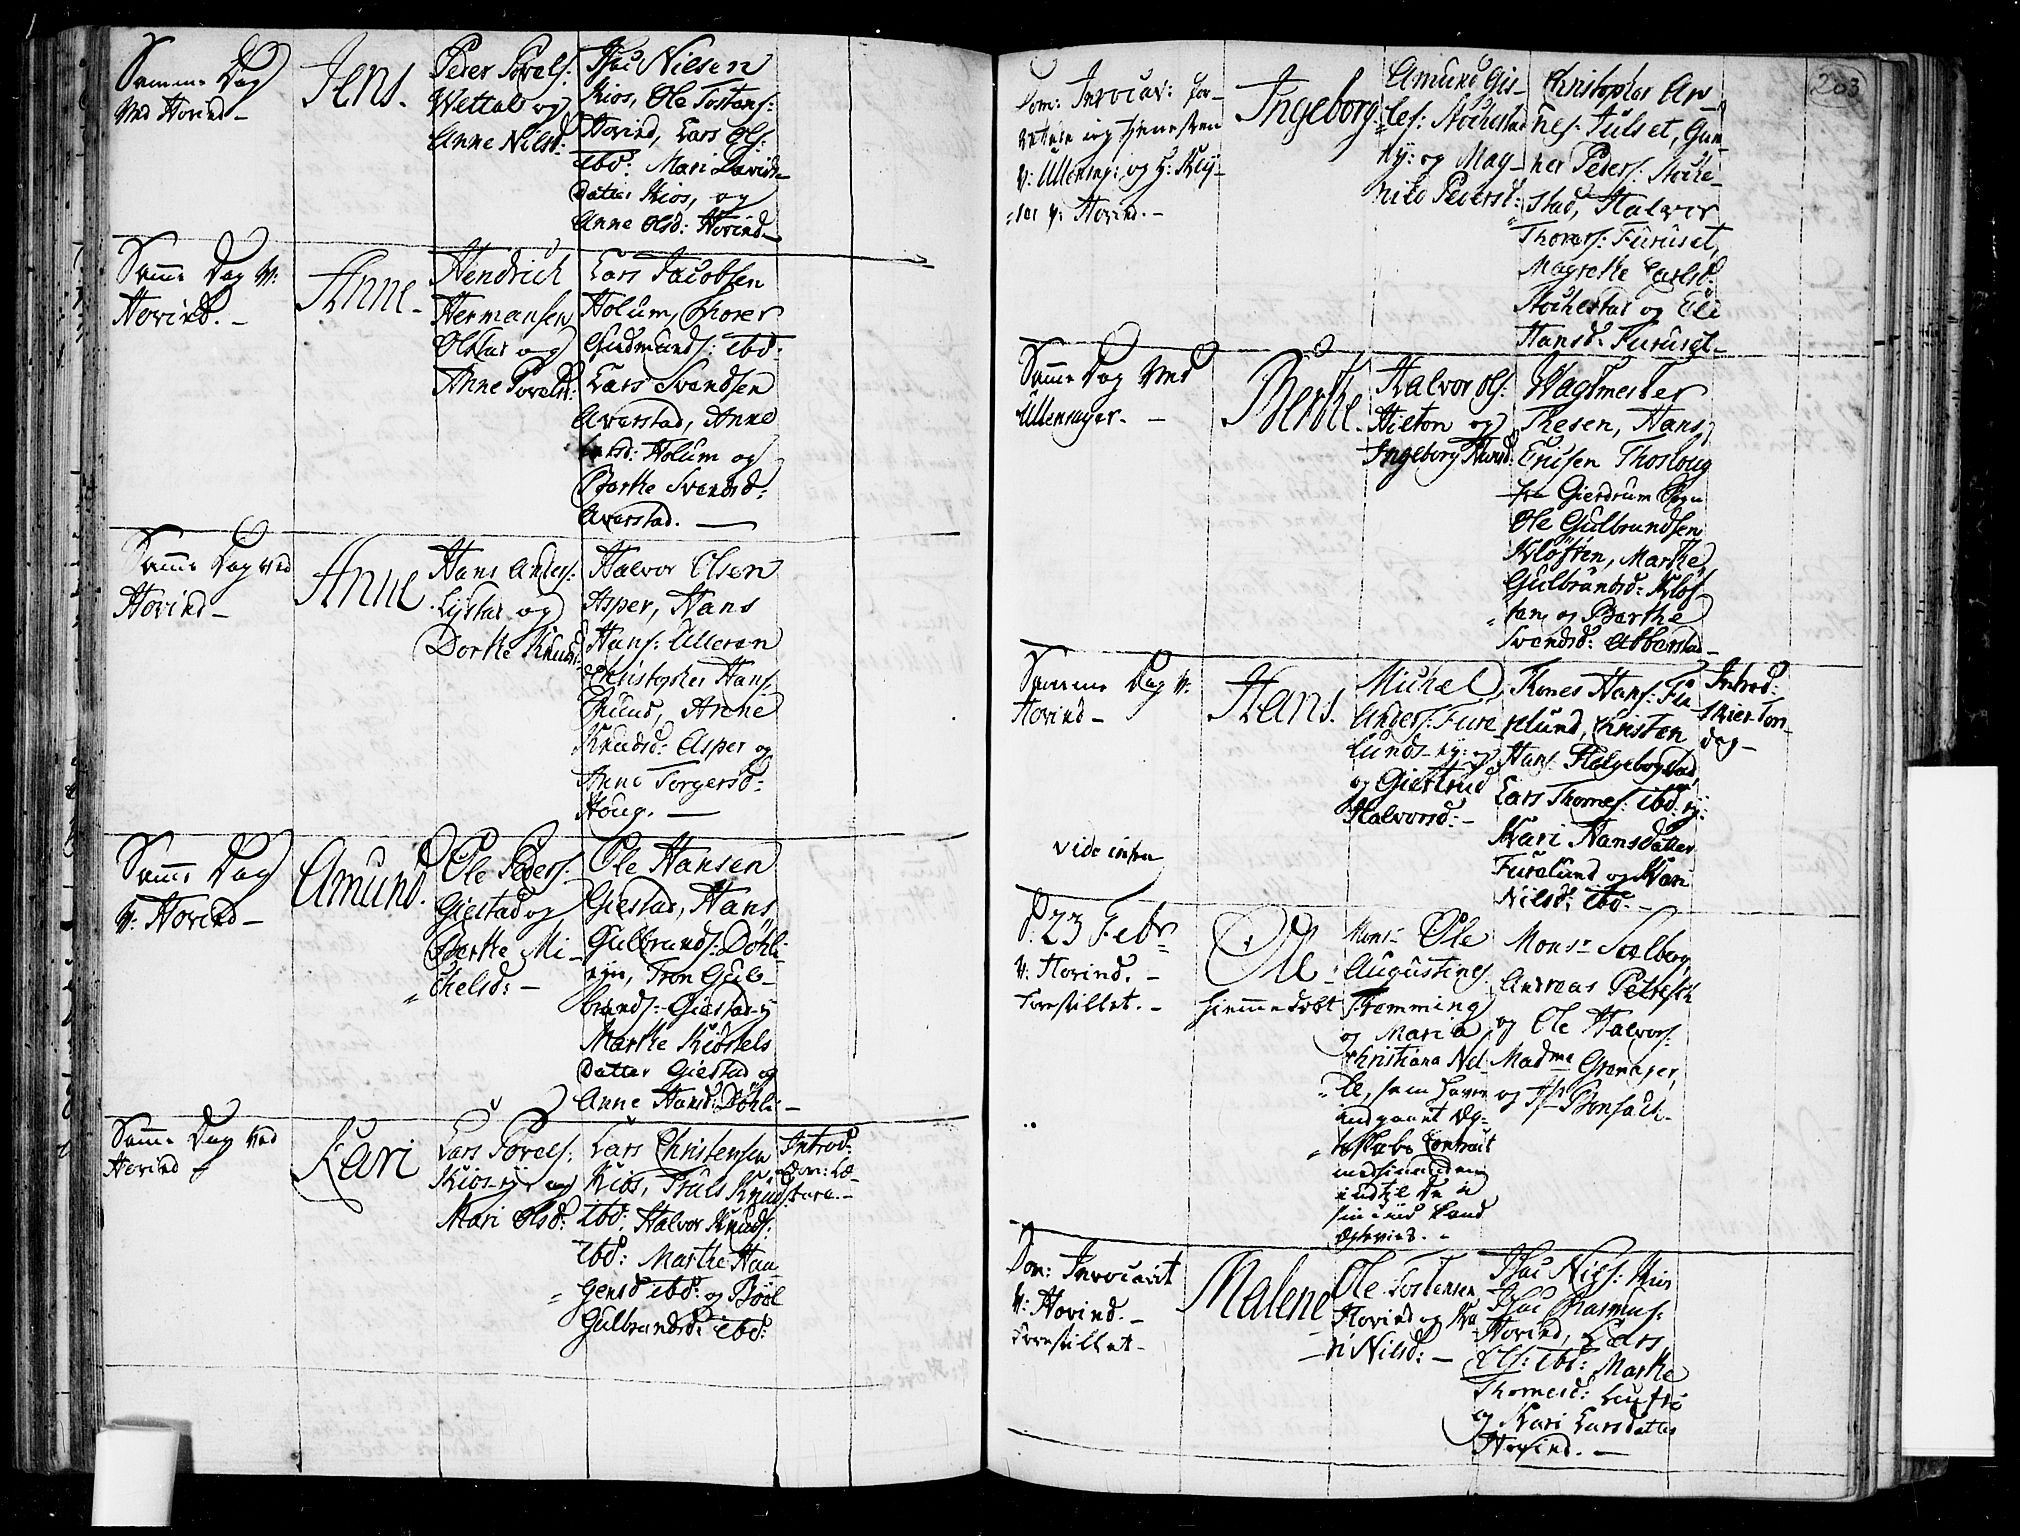 Samme Dag
Ved Hovind –
Jens.
Peder Povels:
Wettal og
Anne Nilsd:
Isac Nielsen
Kios, Ole Tostens:
Hovind, Lars Ols:
ibd: Mari Davids
datter Kios, og
Anne Olsd: Hovind –
Samme Dag V:
Hovind. –
Anne.
Hendrich
Hermansen
Olstad og
Anne Povelsd:
Lars Jacobsen
Holum, Thorer
Gudmunds: ibd:
Lars Svendsen
Averstad, Anne
Holum og
Berthe Svendsd:
Averstad. –
Samme Dag ved
Hovind –
Anne
Hans Anders:
Lystad og
Dorthe Knuds:
Halvor Olsen
Asper, Hans
Hans: Ulleren
Christopher Hans:
Anne
Knudsd: Asper og
Anne Torgersd:
Houg. –
Samme Dag
V: Hovind –
Amund.
Ole Peders:
Giestad og
Berthe Mi-
chelsd: –
Ole Hansen
Giestad, Hans
Gulbrands: Döhli-
eyn, Tron Gul-
brands: Giestad-ey
Marthe Kiöstels
Datter Giestad og
Anne Hansd: Döhli –
Samme Dag ved
Hovind –
Kari
Lars Povels:
Kios-ey og
Mari Olsd:
Lars Christensen
Kios, Truls Knuds:
ibd: Halvor Knuds:
ibd: Marthe Haa-
gensd ibd: og Böel
Gulbrandsd: ibd:
Introd:
Dom: Læ-
tare. –
203
Dom: Invocav: for-
rettede ieg tienesten
V: Ullensag: og H:
V: Hovind. –
Ingeborg.
Amund Gis-
les: Nochestad
ey: og Mag-
nild Pedersd:
Christopher Ar-
nes: Julset, Gun-
ner Peders: Noche-
stad, Halvor
Thorers: Furuset,
Magrethe Carlsd:
Nochestad og Eli
Hansd: Furuset –
Samme Dag Ved
Ullensager. –
Berthe.
Halvor Ols:
Hilton og
Ingeborg
Wagtmester
Thesen, Hans
Ericsen Thosloug
fra Gierdrum Sogn
Ole Gulbrandsen
Klöften, Marthe
Gulbrandsd: Klöf-
ten, og Berthe
Svendsd: Abberstad –
Samme Dag V:
Hovind –
Hans.
Michel
Anders: Fure-
lunds-ey: og
og Giertrud
Halvorsd: –
Thones Hans: Fu-
relund, Christen
Hans: Helgebostad
Lars Thomes: ibd: ey:
Kari Hansdatter
Furelund og Kari
Nilsd: ibd: –
Introd:
Skier-Tors-
dag –
vide infra
d: 23 Febr
V: Hovind. –
Forestillet. –
Ole
Hiemmedöbt
Mons: Ole
Augustines:
Flemming
og Maria
Christiana Nel-
le, som haver
indgaaet Æg-
teskabs Contract
indtil de i
Mons: Saalberg
Andreas
og Ole Halvors:
Madme Grönager,
og Bonsach.
Dom: Invocavit
V: Hovind. –
Forestillet –
Malene
Ole Tostensen
Hovind og Ka-
ri Nilsd: –
Isac Nils: Kios
Isac Rasmus:
Hovind, Lars
Ols: ibd: Marthe
Thomesd:
og Kari Larsdatter
Hovind. –